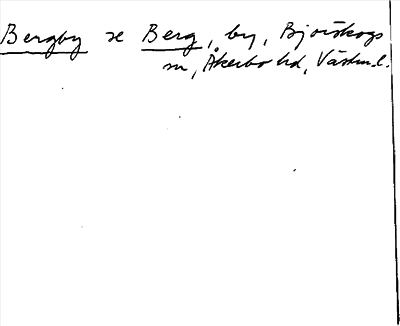 Bergby se Berg, by, Björskogs
sn, Åkerbo hd, Västm.l.